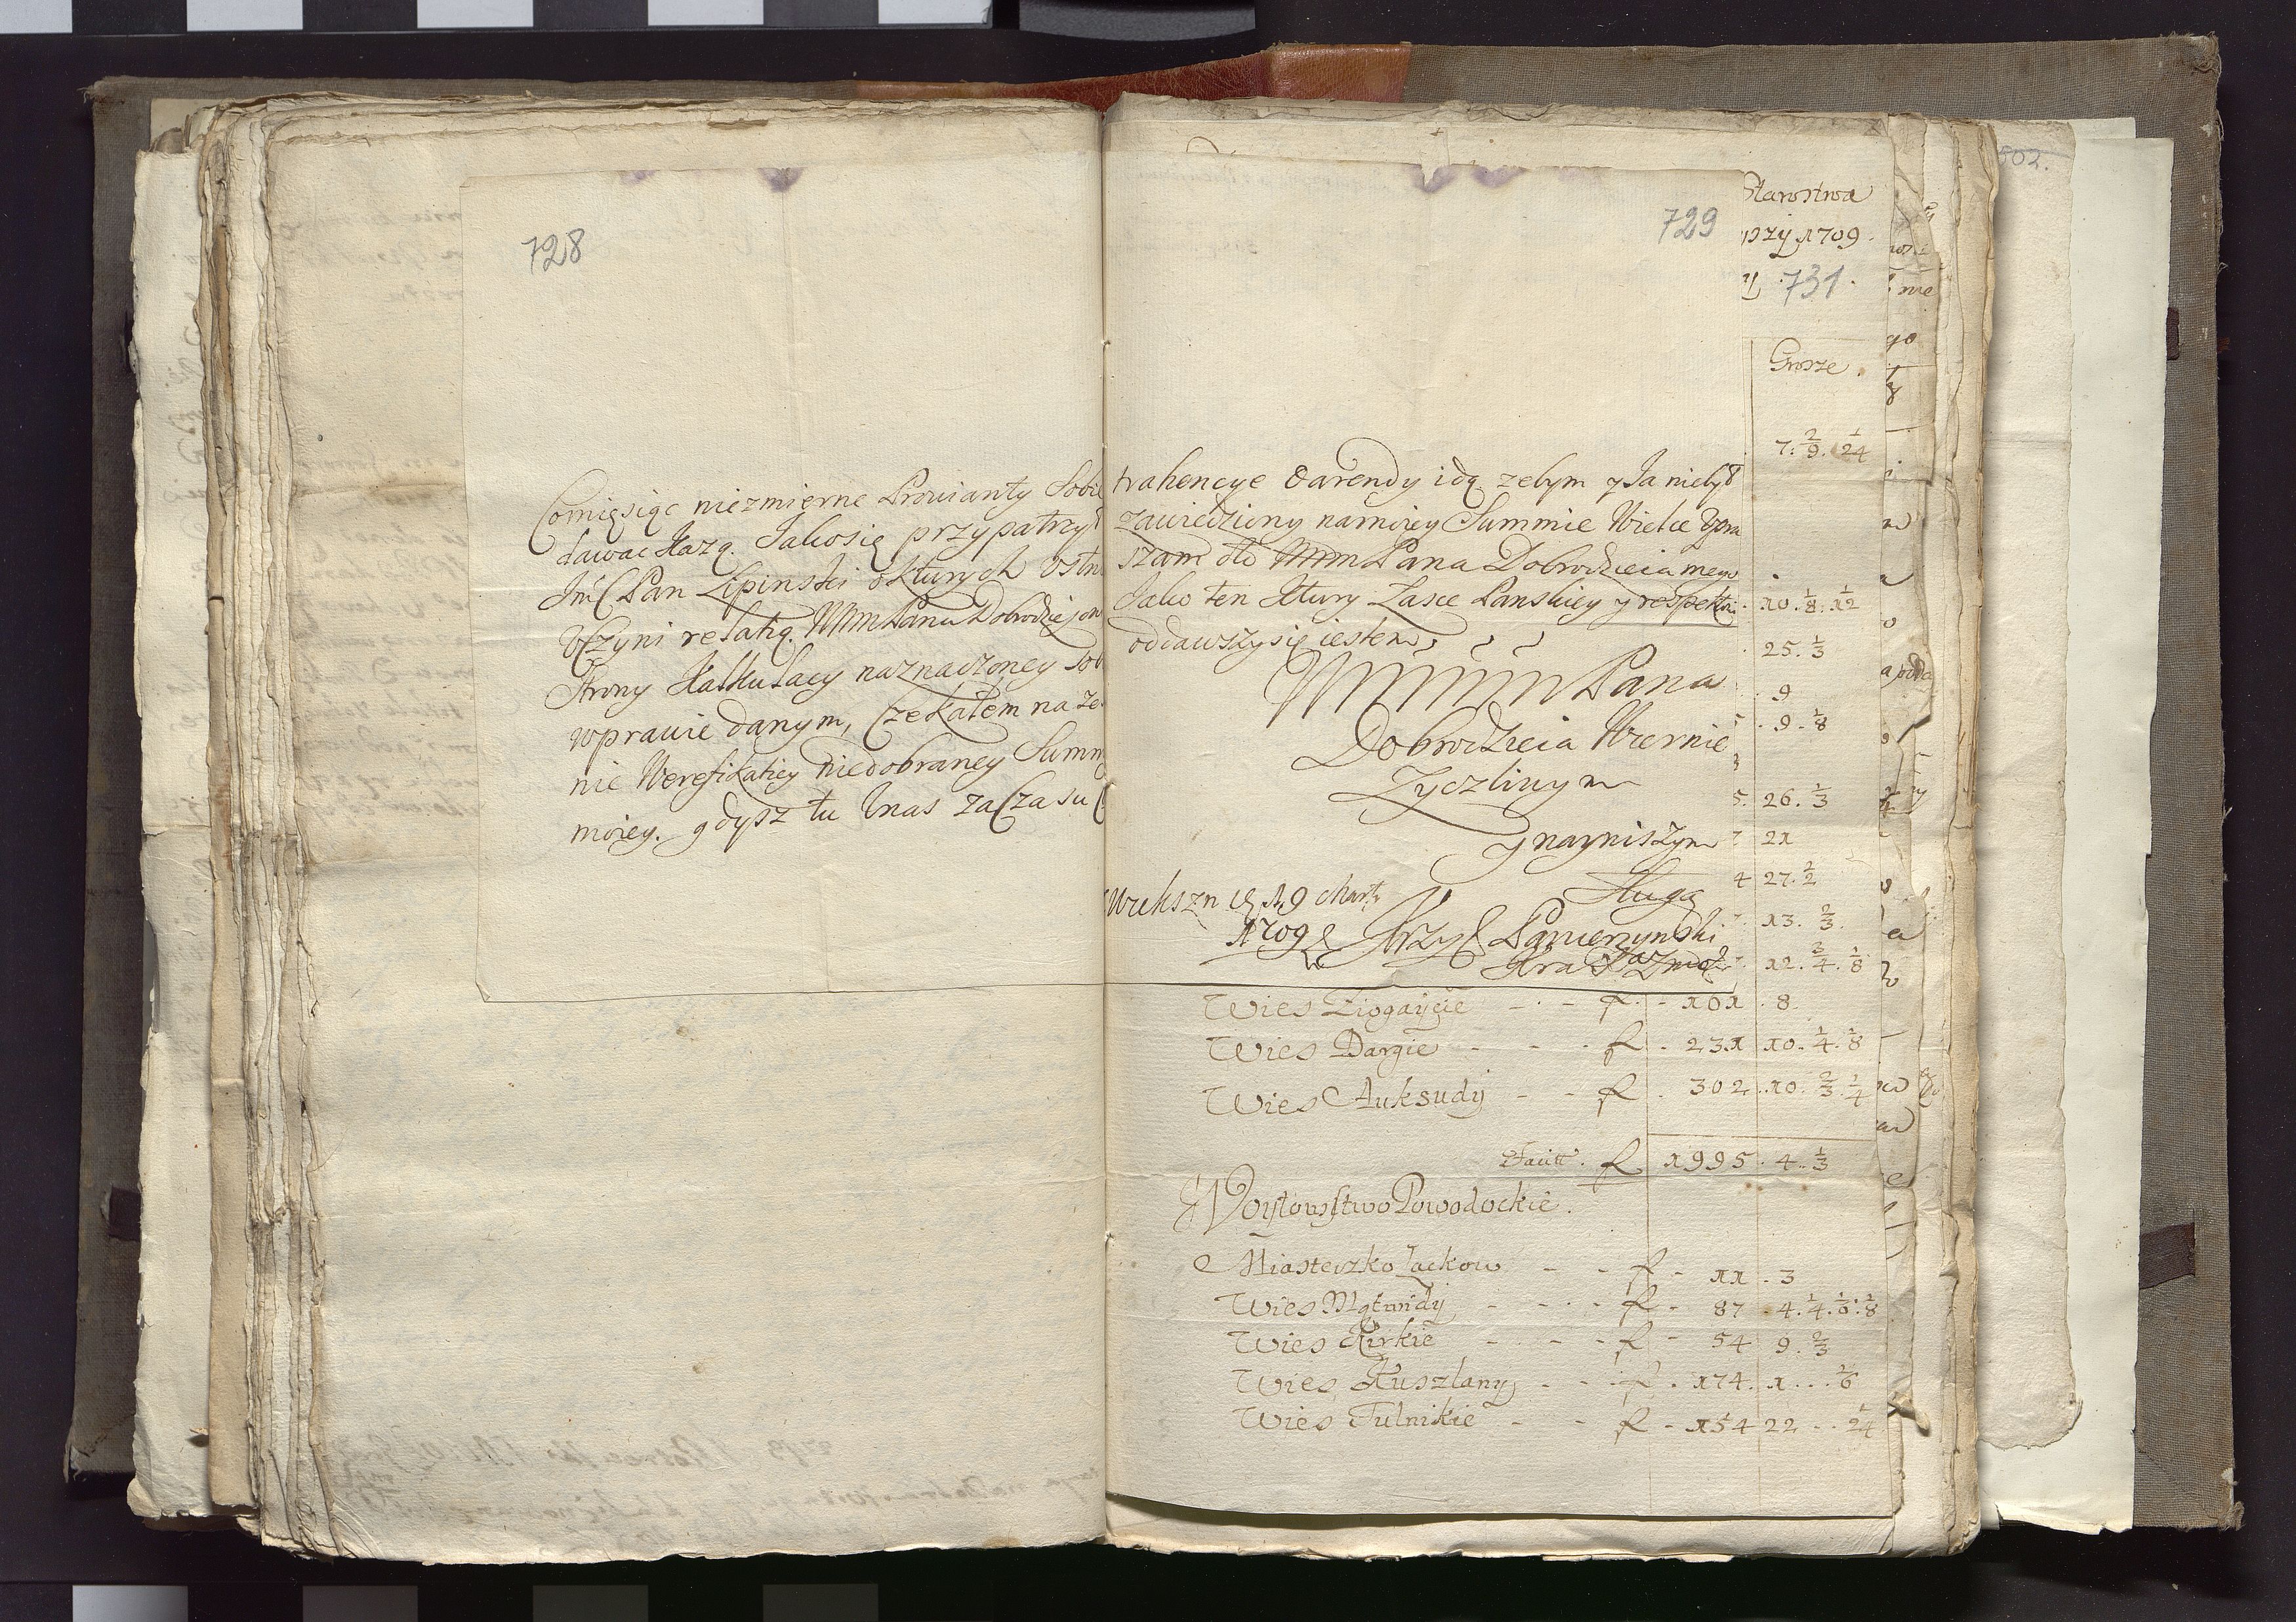 728
Comięsiąc niezmierne Prowianty Sobie
dawać Każą. Jakosię przypatrzył
Jmć Pan Lipinski okturych Ustn
Uczyni relatią. WMm Panu Dobrodziejow
Strony Kalkulacy naznaczoney Sob
wprawie danym, Czekałem na ze
nie Werefikatiey niedobraney Summ
moiey. gdysz tu Unas zaCzasu
729
trahencye Earendy idą zebym y Ja niebył
zawiedziony namoiey Summie Wielce Upra
szam dto WMm Pana Dobrodzieia mego
Jako ten Ktury Łasce Panskiey y respektowi
oddawszysię iestem
WMMM Pana
Dobrodzieia Wiernie
Zyczliwym
y nayniszym
Sługą
Wieksznią 19 Mart
1709 Krzy Pamerzynski
Starostwa
pszy 1709.
731.
Grosze.
7. 2/9. 1/24
10. 1/8. 1/12
25. 1/3
9
9. 1/8
5. 26. 1/3
21
4 27. 1/2
13. 2/3.
12. 3/4. 1/8
Wies Ziogaycie - - f. - 101. 8.
Wies Dargie - - - f. - 231 10. 1/4. 1/8
Wies Auksudy - - f. 302. 10. 2/3. 1/4
Facitt. f. 1995. 4. 1/3
Woytowstwo Powodockie.
Miasteczko Lackow - - f. - 11. 3
Wies Mątwidy - - - f. - 87. 4. 1/4. 1/6. 1/8
Wies Kirkie - - - f. - 54 9. 2/3
Wies Kuszlany - - - f. - 174. 1 . . . 1/6
Wies Tulnikie - - f. - 154 22 . . 1/24
502.